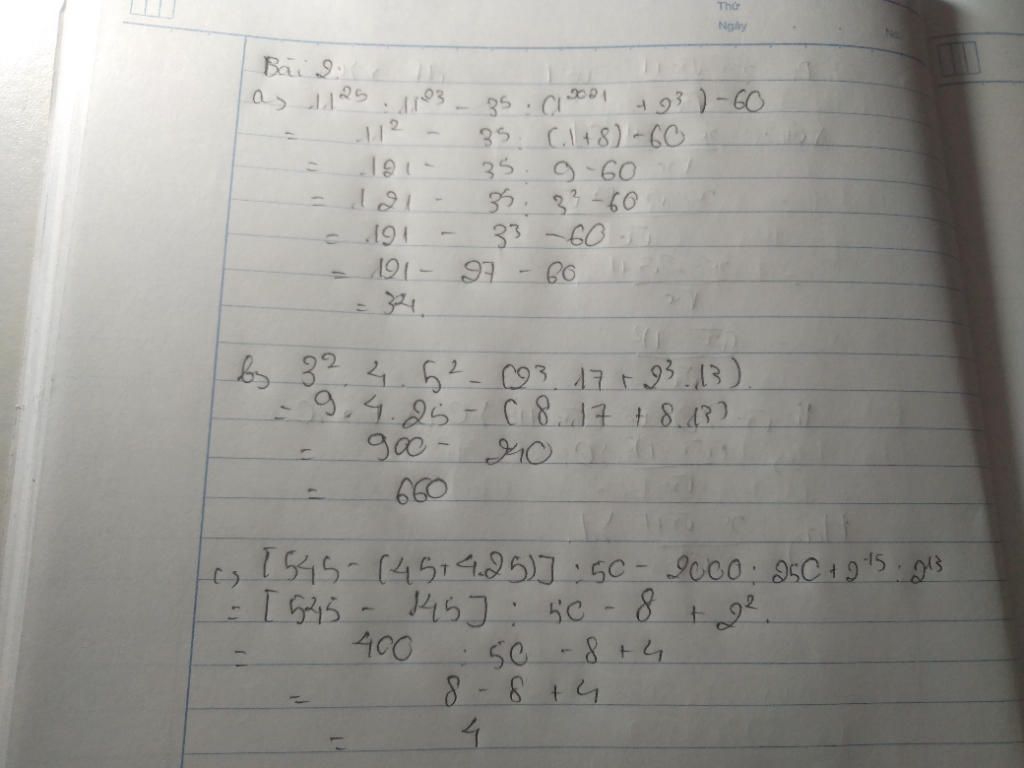 Thứ
Ngày
Bài 2:
a) 11²⁵ : 11²³ - 3⁵ : (1²⁰²¹ + 2³) - 60
= 11² - 3⁵ : (1+8) - 60
= 121 - 3⁵ : 9 - 60
= 121 - 3⁵ : 3² - 60
= 121 - 3³ - 60
= 121 - 27 - 60
= 34.
b) 3² . 4 . 5² - (2³ . 17 + 2³ . 13).
= 9 . 4 . 25 - (8 . 17 + 8 . 13)
= 900 - 240
= 660
c) [545 - (45 + 4.25)] : 50 - 2000 : 250 + 2¹⁵ : 2¹³
= [545 - 145] : 50 - 8 + 2².
= 400 : 50 - 8 + 4
= 8 - 8 + 4
= 4